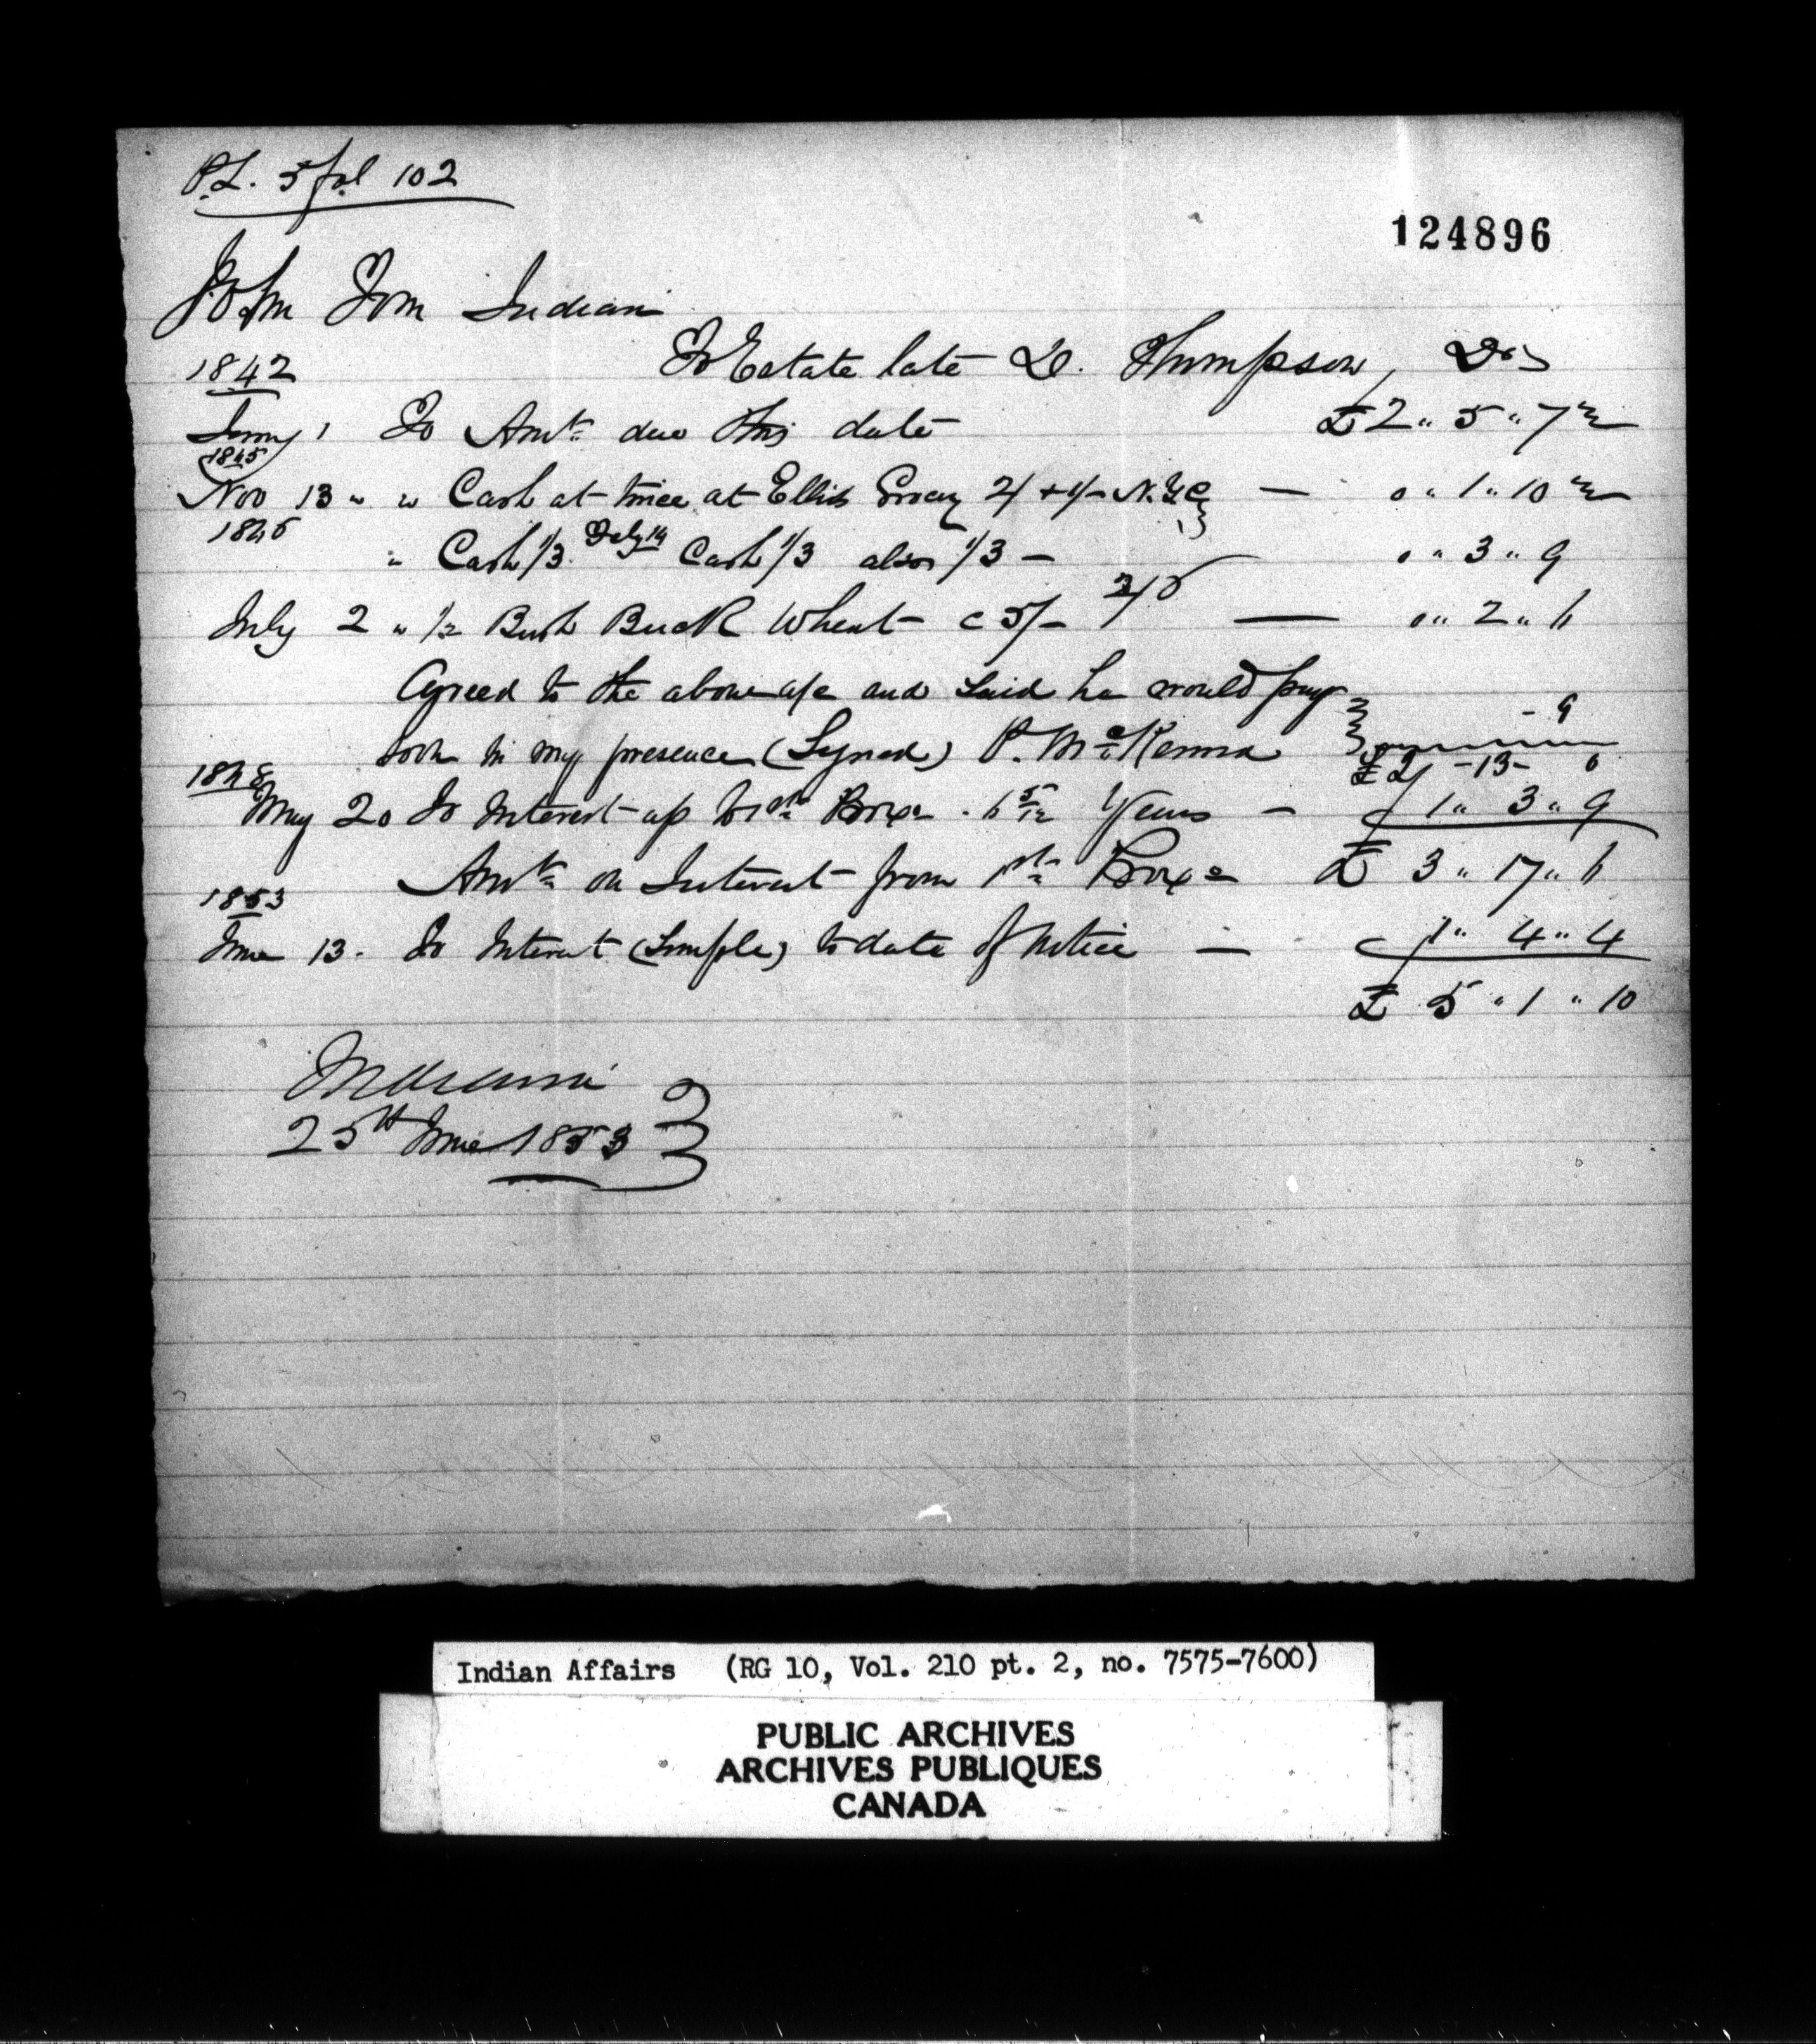 P.L. 5 fol 102
124896
John Tom Indian
1842 To Estate late D. Thompson, Dr
Jany 1 To Amt due this date £2 " 5 " 7½
1845
Nov 13 " " Cash at twice at Ellis 2/ + 4/- N.Y.C } — 0 " 1 " 10½
1846
" Cash 1/3 July 14 Cash 1/3 also 1/3 — 0 " 3 " 9
July 2 " ½ Bush Buck Wheat c 5/- 2/6 — 0 " 2 " 6
Agreed to the above a/c and said he would pay
soon in my presence (Signed) P. McKenna } - 9
£2 - 13 - 6
1848
May 20 To Interest up to 1st Boxe - 6 5/12 Years — 1 " 3 " 9
Amt on Interest from 1st Boxe £ 3 " 17 " 6
1853
June 13 - To Interest (Simple) to date of Notice — 1 " 4 " 4
£ 5 " 1 " 10
25th June 1853
Indian Affairs (RG 10, Vol. 210 pt. 2, no. 7575-7600)
PUBLIC ARCHIVES
ARCHIVES PUBLIQUES
CANADA